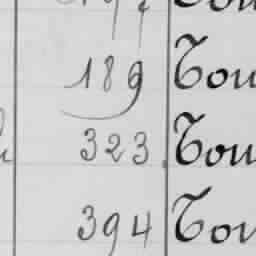 189 Tou
323 Tou
394 Tou